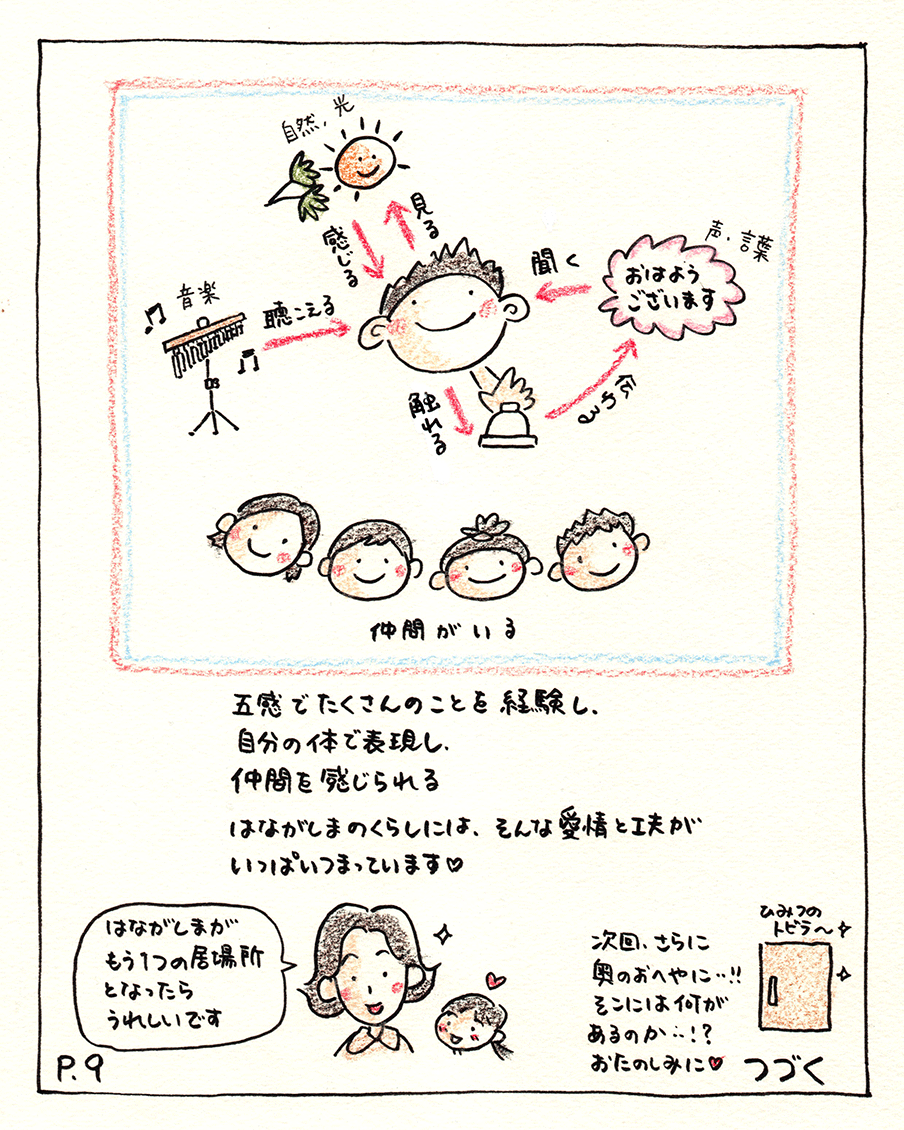 自然、光
見る
感じる
声、言葉
聞く
おはよう
ございます
音楽
聴こえる
触れる
伝わる
仲間がいる
五感でたくさんのことを経験し、
自分の体で表現し、
仲間を感じられる
はながしまのくらしには、そんな愛情と工夫が
いっぱいつまっています♡
はながしまが
もう1つの居場所
となったら
うれしいです
ひみつの
トビラ〜
次回、さらに
奥のおへやに‥!!
そこには何が
あるのか‥!?
おたのしみに♥
つづく
P.9